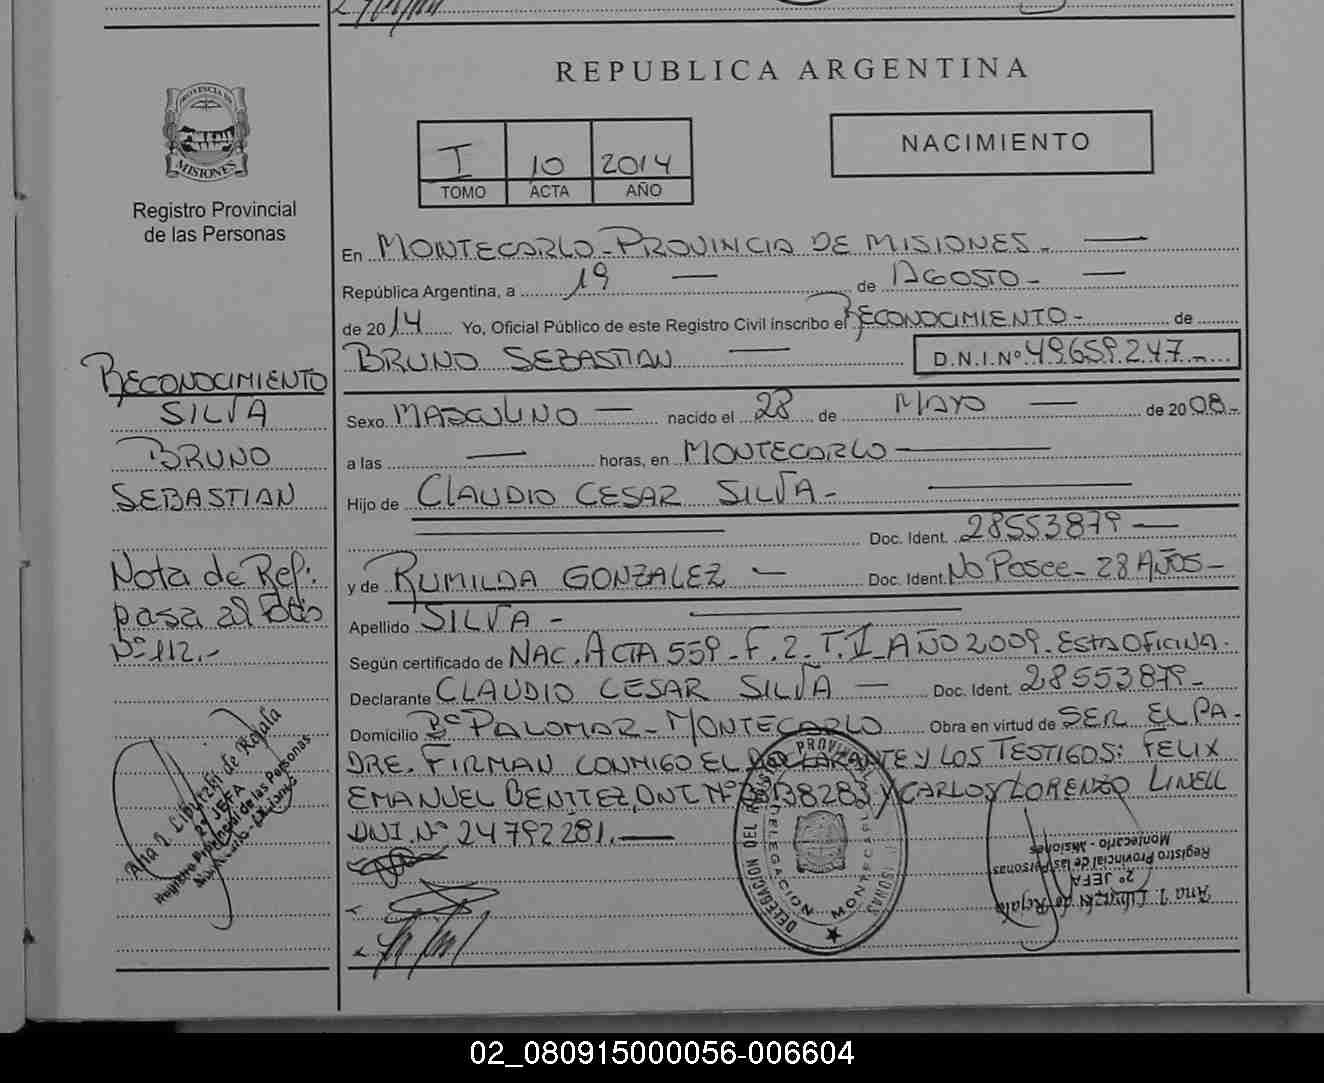 REPUBLICA ARGENTINA
PROVINCIA DE
MISIONES
Registro Provincial
de las Personas
I 10 2014
TOMO ACTA AÑO
NACIMIENTO
En MONTECARLO-PROVINCIA DE MISIONES-
República Argentina, a 19 de AGOSTO-
de 2014 Yo, Oficial Público de este Registro Civil inscribo el RECONOCIMIENTO- de
BRUNO SEBASTIAN D.N.I.Nº 49.659.247-
Sexo MASCULINO nacido el 28 de MAYO de 2008-
a las horas, en MONTECARLO
Hijo de CLAUDIO CESAR SILVA-
Doc. Ident. 28553879
y de RUMILDA GONZALEZ Doc. Ident. No Posee- 28 AÑOS-
Apellido SILVA-
Según certificado de NAC. ACTA 559-F.2-T.I-AÑO 2009-ESTA OFICINA.
Declarante CLAUDIO CESAR SILVA Doc. Ident. 28553879-
Domicilio Bº PALOMAR-MONTECARLO Obra en virtud de SER EL PA-
DRE. FIRMAN CONMIGO EL DECLARANTE Y LOS TESTIGOS: FELIX
EMANUEL BENITEZ, DNI Nº 38283 Y CARLOS LORENZO LINELL
DNI.Nº 24792281.
RECONOCIMIENTO
SILVA
BRUNO
SEBASTIAN
Nota de Ref:
pasa al
Nº 112.-
2º JEFA
Registro Provincial de las Personas
DELEGACION DEL REGISTRO PROVINCIAL
DELEGACION MONTECARLO
2º JEFA
Registro Provincial de las Personas
Montecarlo - Misiones
02_080915000056-006604